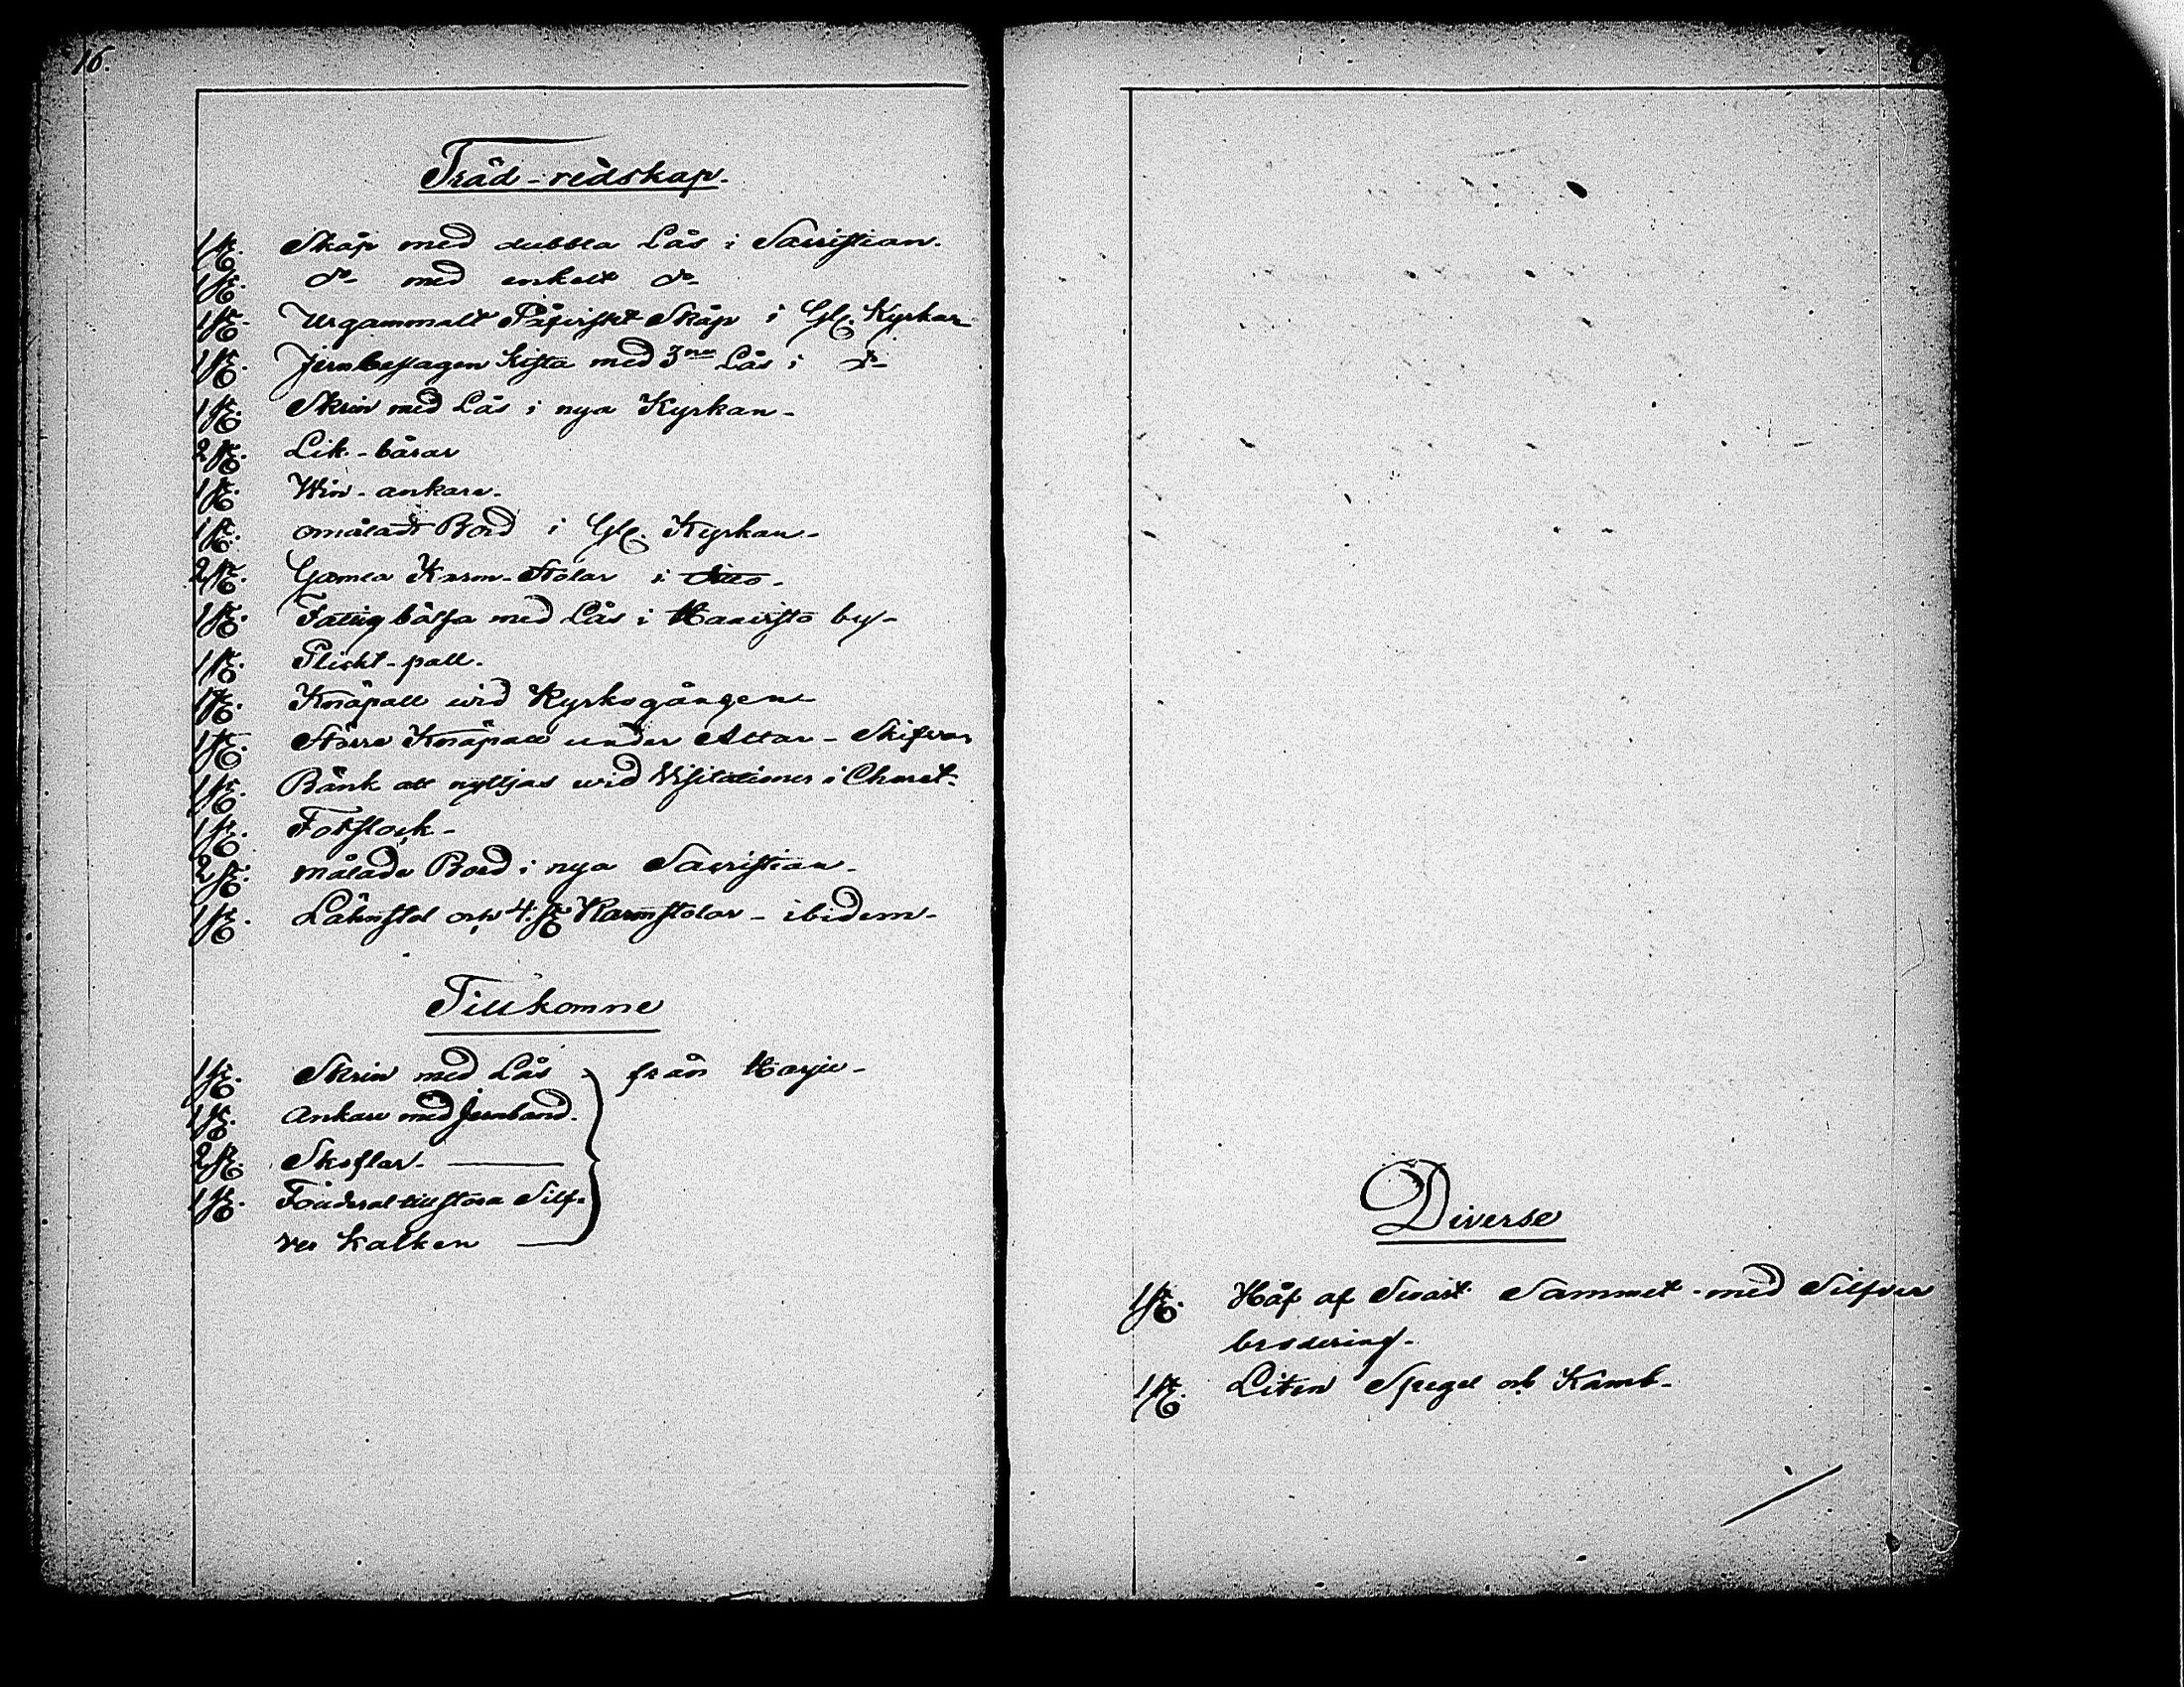 16.
Träd-redskap.
1 st. Skåp med dubbla Lås i Sacristian.
1 st. do med enkelt do
1 st. Urgammalt Påfviskt Skåp i Gl. Kyrkan
1 st. Jernbeslagen Kista med 3ne Lås i do
1 st. Skrin med Lås i nya Kyrkan.
2 st. Lik-bårar
1 st. Win-ankare.
1 st. omåladt Bord i Gl. Kyrkan.
2 st. Gamla Karm-Stolar i ditto.
1 st. Fattigbössa med Lås i by.
1 st. Plickt-pall.
1 st. Knäpall wid Kyrkogången
1 st. Större Knäpall under Altar-Skifvan
1 st. Bänk att nyttjas wid Visitationer i Choret.
1 st. Fotstock.
2 st. målade Bord i nya Sacristian.
1 st. Lähnstol och 4. st Karmstolar ibidem.
Tillkomne
1 st. Skrin med Lås från Harju
1 st. Ankare med Jernband.
2 st. Skoflar.
1 st. Fouderal till stora Silf-
ver Kalken
Diverse
1 st. Håf af Svart Sammet med Silfver
brodering.
1 st. Liten Spegel och Kamb.